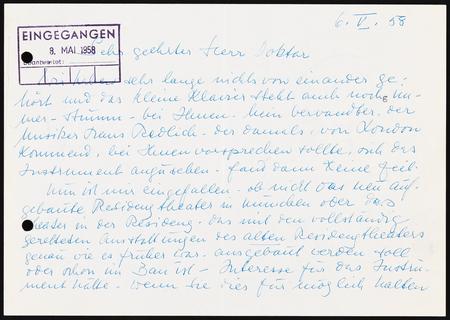 6. V. 58
EINGEGANGEN
8. MAI 1958
Beantwortet:
Sehr geehrter Herr Doktor
Wir haben sehr lange nichts von einander ge-
hört und das kleine Klavier steht auch noch im-
mer - stumm - bei Ihnen. Mein Verwandter, der
Musiker Hans Redlich - der damals, von London
kommend, bei Ihnen vorsprechen sollte, sich das
Instrument anzusehen - fand dann keine Zeit.
Nun ist mir eingefallen - ob nicht das neu auf-
gebaute Residenztheater in München oder das
Theater in der Residenz - das mit den vollständig
geretteten Ausstattungen des alten Residenztheaters
genau wie es früher war - ausgebaut werden soll
oder schon im Bau ist - Interesse für das Instru-
ment hätte - wenn Sie dies für möglich halten